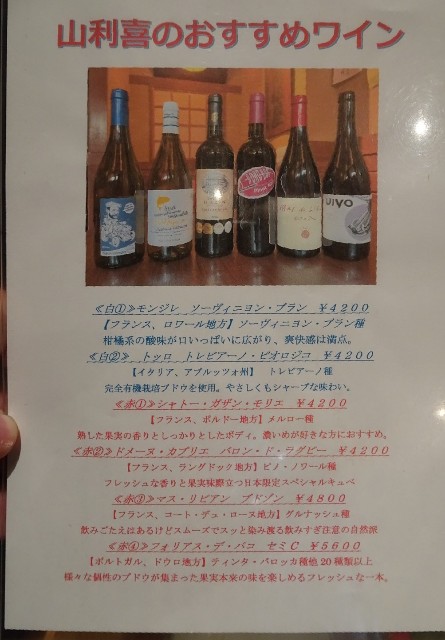 山利喜のおすすめワイン
VIVO
≪白①≫モンジレ ソーヴィニヨン・ブラン ¥4200
【フランス、ロワール地方】ソーヴィニヨン・ブラン種
柑橘系の酸味が口いっぱいに広がり、爽快感は満点。
≪白②≫ トッロ トレビアーノ・ビオロジコ ¥4200
【イタリア、アブルッツォ州】 トレビアーノ種
完全有機栽培ブドウを使用。やさしくもシャープな味わい。
≪赤①≫シャトー・ガザン・モリエ ¥4200
【フランス、ボルドー地方】メルロー種
熟した果実の香りとしっかりとしたボディ。濃いめが好きな方におすすめ。
≪赤②≫ドメーヌ・カブリエ バロン・ド・ラグビー ¥4200
【フランス、ラングドック地方】ピノ・ノワール種
フレッシュな香りと果実味際立つ日本限定スペシャルキュベ
≪赤③≫マス・リビアン ブドゾン ¥4800
【フランス、コート・デュ・ローヌ地方】グルナッシュ種
飲みごたえはあるけどスムーズでスッと染み渡る飲みすぎ注意の自然派
≪赤④≫フォリアス・デ・バコ セミC ¥5600
【ポルトガル、ドウロ地方】ティンタ・バロッカ種他20種類以上
様々な個性のブドウが集まった果実本来の味を楽しめるフレッシュな一本。